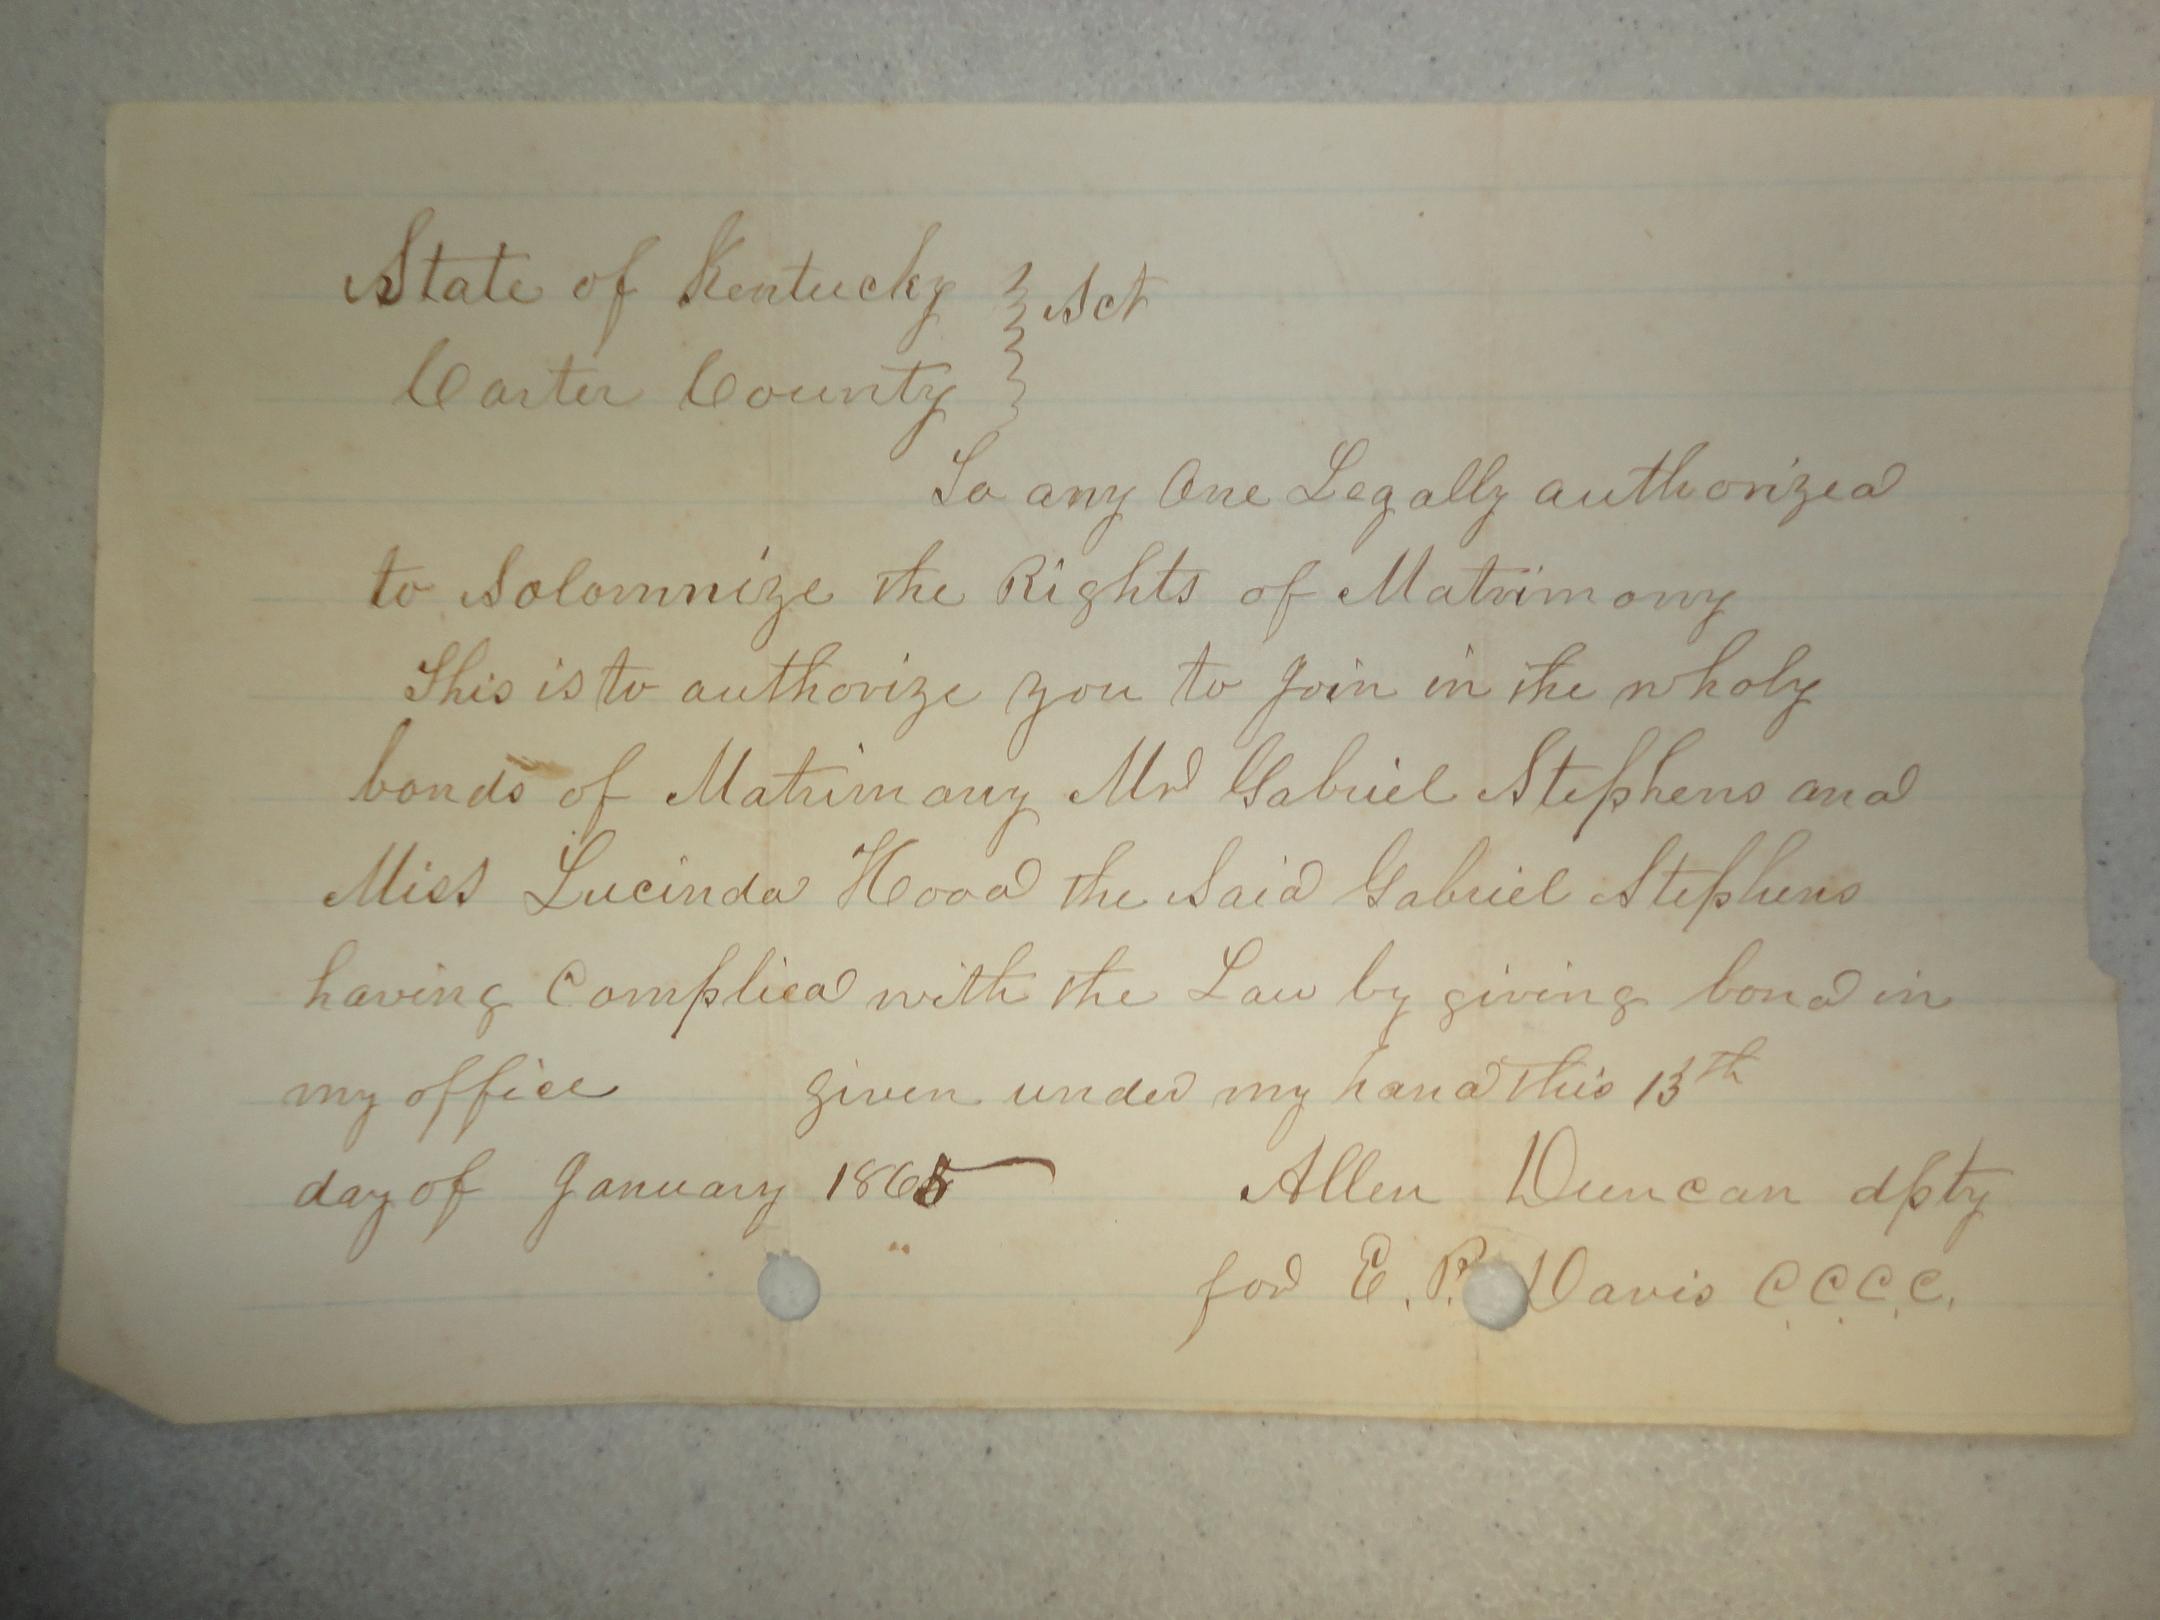 State of Kentucky } Sct
Carter County
To any One Legally authorized
to Solomnize the Rights of Matrimony
This is to authorize you to Join in the wholy
bonds of Matrimony Mr Gabriel Stephens and
Miss Lucinda Hood the Said Gabriel Stephens
having Complied with the Law by giving bond in
my office given under my hand this 13th
day of January 1865 Allen Duncan dpty
for E. P. Davis C.C.C.C.